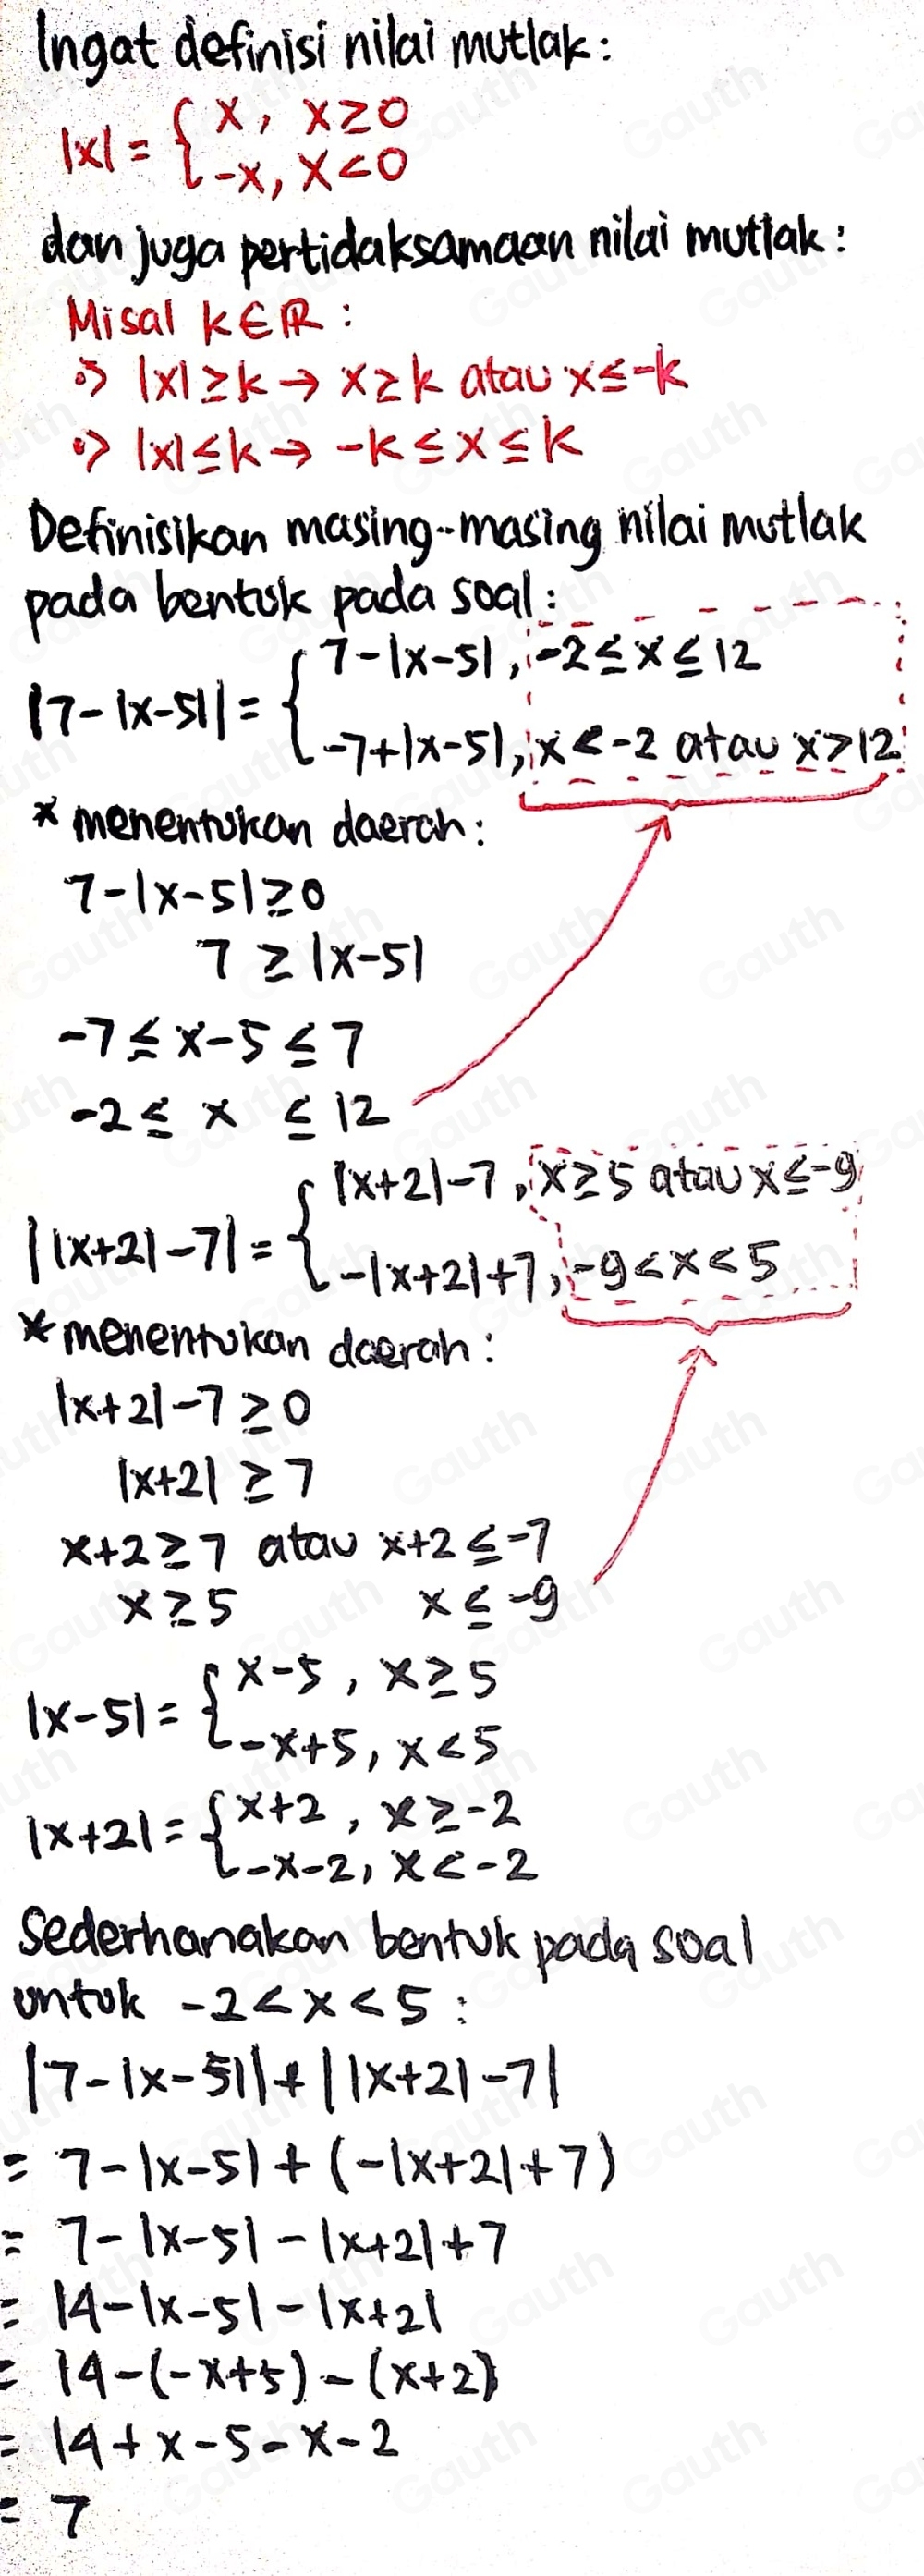 Ingat definisi nilai mutlak:
|x| = { x, x ≥ 0
-x, x < 0
dan juga pertidaksamaan nilai mutlak:
Misal k ∈ ℝ :
•> |x| ≥ k → x ≥ k atau x ≤ -k
•> |x| ≤ k → -k ≤ x ≤ k
Definisikan masing-masing nilai mutlak
pada bentuk pada soal:
|7-|x-5|| = { 7-|x-5|, -2 ≤ x ≤ 12
-7+|x-5|, x < -2 atau x > 12
* menentukan daerah:
7-|x-5| ≥ 0
7 ≥ |x-5|
-7 ≤ x-5 ≤ 7
-2 ≤ x ≤ 12
||x+2|-7| = { |x+2|-7, x ≥ 5 atau x ≤ -9
-|x+2|+7, -9 < x < 5
* menentukan daerah:
|x+2|-7 ≥ 0
|x+2| ≥ 7
x+2 ≥ 7 atau x+2 ≤ -7
x ≥ 5 x ≤ -9
|x-5| = { x-5, x ≥ 5
-x+5, x < 5
|x+2| = { x+2, x ≥ -2
-x-2, x < -2
Sederhanakan bentuk pada soal
untuk -2 < x < 5 :
|7-|x-5||+||x+2|-7|
= 7-|x-5|+(-|x+2|+7)
= 7-|x-5|-|x+2|+7
= 14-|x-5|-|x+2|
= 14-(-x+5)-(x+2)
= 14+x-5-x-2
= 7